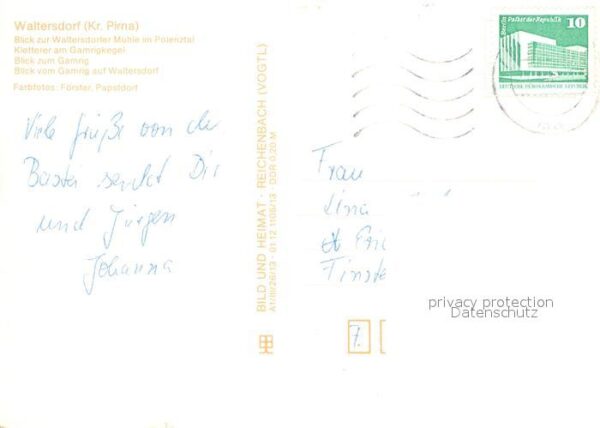 Waltersdorf (Kr. Pirna)
Blick zur Waltersdorfer Mühle im Polenztal
Kletterer am Gamrigkegel
Blick zum Gamrig
Blick vom Gamrig auf Waltersdorf
Farbfotos: Förster, Papstdorf
Viele Grüße von der
Bastei sendet Dir
und Jürgen
Johanna
BILD UND HEIMAT · REICHENBACH (VOGTL)
A1/III/26/13 · 01 12 1105/13 · DDR 0,20 M
Berlin Palast der Republik
10
DEUTSCHE DEMOKRATISCHE REPUBLIK
Frau
Lina
7.
privacy protection
Datenschutz